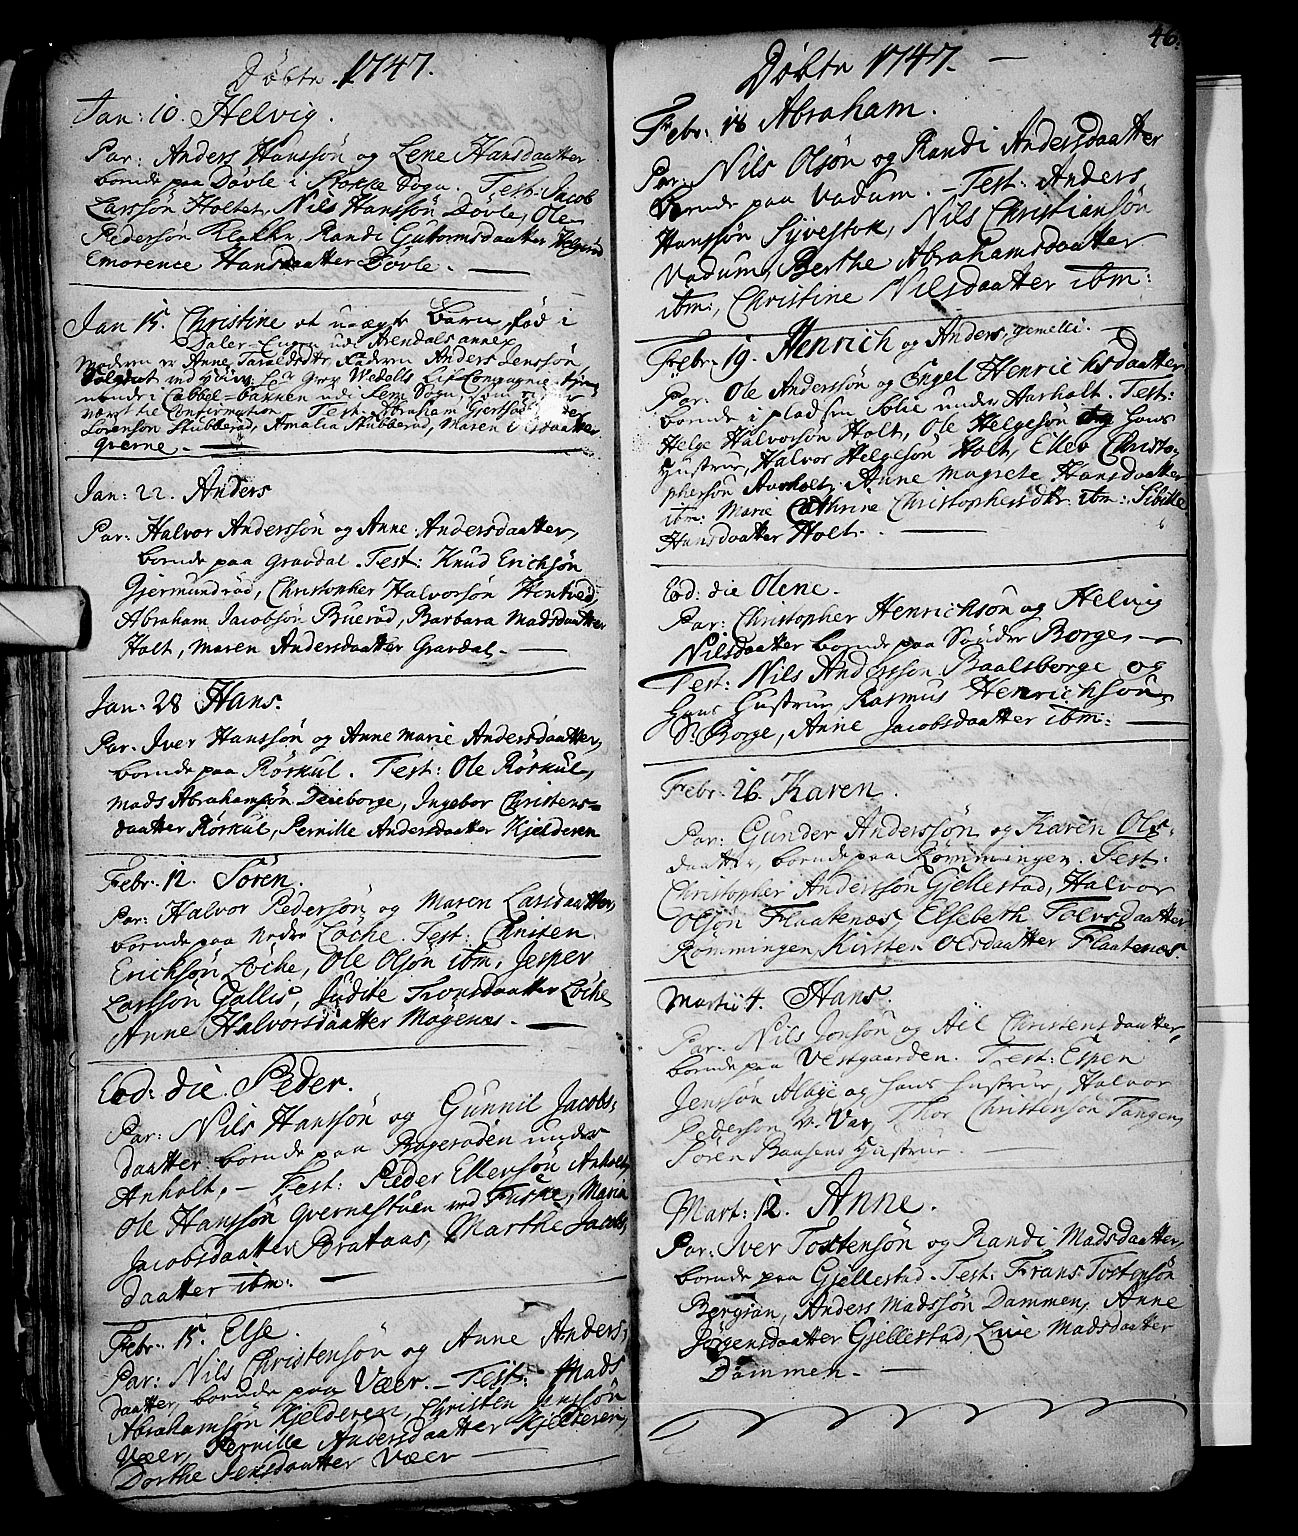 Döbte 1747.
Jan: 10. Helvig.
Par: Anders Hanssøn og Lene Hansdaatter
boende paa Døvle i Stokke Sogn. Test: Jacob
Larssøn Holtet, Nils Hanssøn Døvle, Ole
Pedersøn Klække, Randi Gutormsdaatter
Emorence Hansdaatter Døvle.
Jan 15. Christine et uægte Barn, fød i
udi Arendals annex
Modern er Anne Faderen Anders Jenssøn
Lif Compagnie
udi Sems Sogn, som
næst til Confirmation. Test: Abraham Giertsøn
Sørenssøn Stubberød, Amalia Stubberød, Maren Olsdaatter
Qverne.
Jan: 22. Anders
Par: Halvor Anderssøn og Anne Andersdaatter,
boende paa Gravdal. Test: Knud Erichsøn
Gjermundrød, Christopher Halvorsøn Hontved,
Abraham Jacobsøn Buerød, Barbara Madsdaatter
Holt, Maren Andersdaatter Gravdal.
Jan: 28 Hans.
Par: Iver Hanssøn og Anne Marie Andersdaatter,
boende paa Rørkul. Test: Ole Rørkul,
Mads Abrahamsøn Deieborge, Ingebor Christens=
daatter Rørkul, Pernille Andersdaatter Kjelderen
Febr: 12. Søren.
Par: Halvor Pedersøn og Maren Larsdaatter,
boende paa Nedre Løche. Test: Christen
Erichsøn Løche, Ole Olsøn ibm, Jesper
Larssøn Gallis, Judite Tronsdaatter Løche
Anne Halvorsdaatter Mogenes.
Eod: die Peder.
Par: Nils Hanssøn og Gunnil Jacobs:
daatter boende paa Bogerøden under
Anholt, Test: Peder Ellefsøn Anholt,
Ole Hanssøn Qvernestuen ved Fuske, Maria
Jacobsdaatter Brataas, Marthe Jacobs
daatter ibm:
Febr: 15. Else.
Par: Nils Christensøn og Anne Anders:
daatter, boende paa Væer. Test: Mads
Abrahamsøn Kjelderen, Christen Jenssøn
Væer, Pernille Andersdaatter Kjelderen,
Dorthe Jensdaatter Væer
46.
Döbte 1747.
Febr: 18 Abraham.
Par: Nils Olsøn og Randi Andersdaatter
boende paa Vadum. Test: Anders
Hanssøn Syvestok, Nils Christiansøn
Vadum, Berthe Abrahamsdaatter
ibm:, Christine Nilsdaatter ibm:
Febr: 19. Henrich og Anders, gemelli.
Par. Ole Anderssøn og Engel Henrichsdaatter
boende i pladsen Solie under Aarholt. Test:
Helge Halvorsøn Holt, Ole Helgesøn og hans
Hustrue, Halvor Helgesøn Holt, Ellev Christo-
phersøn Aarholt, Anne Magrete Hansdaatter
ibm: Marie Cathrine Christophersdtr. ibm: Sibille
Hansdaatter Holt.
Eod: die Olene.
Par: Christopher Henrichsøn og Helvig
Nilsdaatter boende paa Sønder Borge,
Test: Nils Anderssen Baalsborge og
hans Hustrue, Rasmus Henrichsøn
S: Borge, Anne Jacobsdaatter ibm:
Febr: 26. Karen.
Par: Gunder Anderssøn og Karen Ols-
daatter, boende paa Rømmingen. Test:
Christopher Anderssøn Gjellestad, Halvor
Olsøn Flaatenæs, Elsebeth Tolvsdaatter
Rømmingen, Kirsten Olsdaatter Flaatenæs.
Martii 4. Hans.
Par: Nils Jonsøn og Ael Christensdaatter,
boende paa Vestgaarden. Test: Espen
Jenssøn og hans Hustrue, Halvor
Pedersøn V. Vær, Thor Christensøn Tangen,
Søren Baasens Hustrue.
Mart: 12. Anne.
Par: Iver Tostensøn og Randi Madsdaatter,
boende paa Gjellestad. Test: Frans Tostensøn
Bergian, Anders Madssøn Dammen, Anne
Jørgensdaatter Gjellestad, Live Madsdaatter
Dammen.